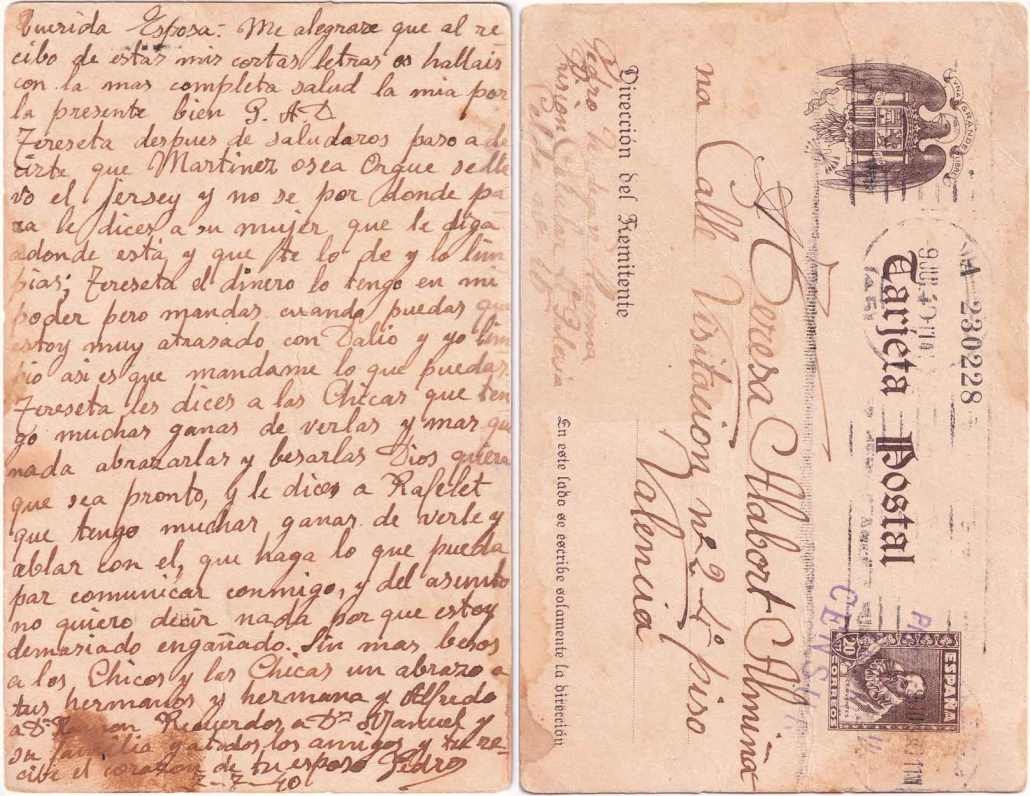 Querida Esposa: Me alegrare que al re
cibo de estas mis cortas letras os hallais
con la mas completa salud la mia por
la presente bien G. A. D.
Tereseta despues de saludaros paso a de
cirte que Martinez osea Orgue se lle
vo el jersey y no se por donde pa
ra le dices a su mujer que le diga
adonde está y que te lo de y lo lim
pias; Tereseta el dinero lo tengo en mi
poder pero mandas cuando puedas que
estoy muy atrasado con Dalio y yo lim
pio asi es que mandame lo que puedas.
Tereseta les dices a las Chicas que ten
go muchas ganas de verlas y mas que
nada abrazarlas y besarlas Dios quiera
que sea pronto, y le dices a Rafelet
que tengo muchar ganar de verle y
ablar con el, que haga lo que pueda
par comunicar conmigo, y del asunto
no quiero decir nada por que estoy
demasiado engañado. Sin mas besos
a los Chicos y las Chicas un abrazo a
tus hermanos y hermana y Alfredo
a Dn Ramon Recuerdos a Dn Manuel y
su familia y a todos los amigos y tu re-
cibe el corazon de tu esposo Pedro
7-7-40
UNA GRANDE LIBRE
A 230228
Tarjeta Postal
9 JUL 40
CENSURA
ESPAÑA
20
CORREOS
A Teresa Alabort Almiña
Calle Visitacion nº 2 4º piso
Valencia
Dirección del Remitente
Pedro
Prision Celular Valencia
Celda nº
En este lado se escribe solamente la dirección